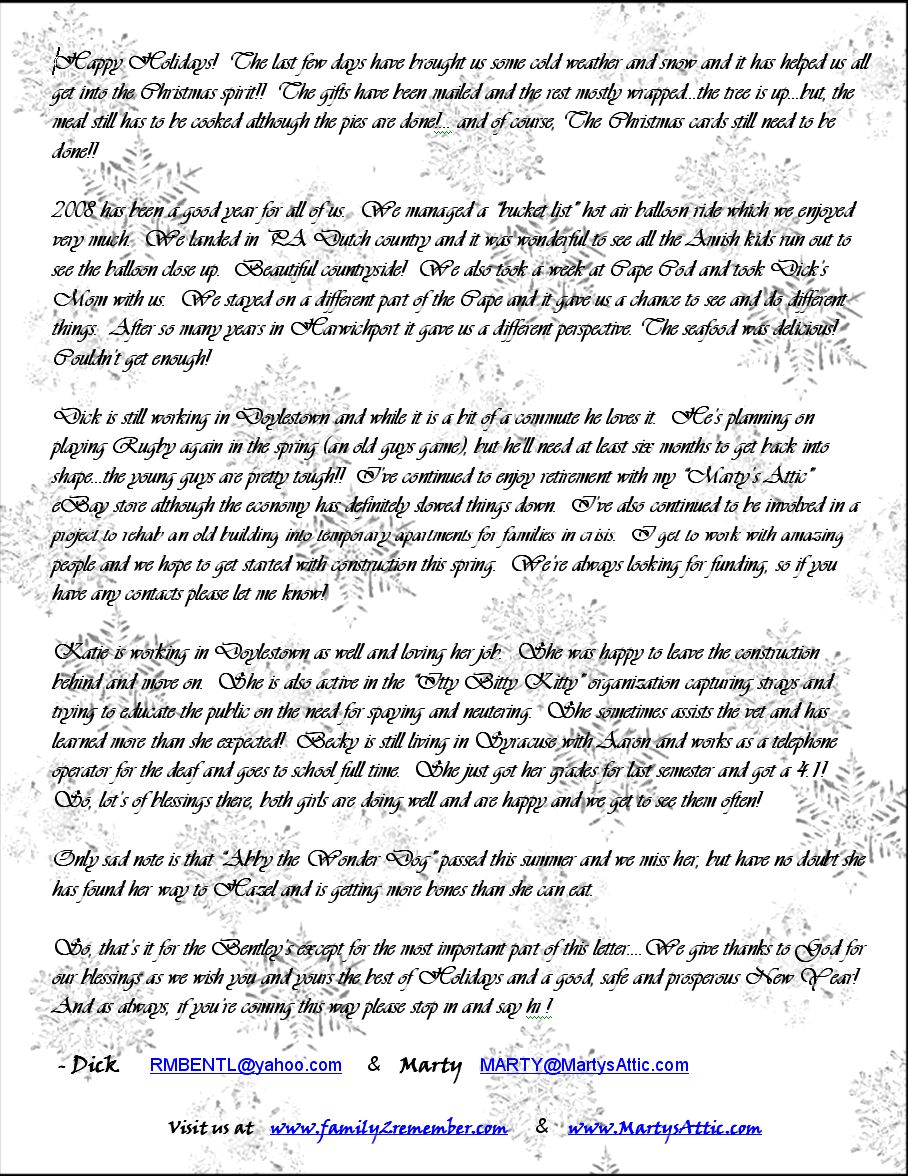 Happy Holidays!  The last few days have brought us some cold weather and snow and it has helped us all
get into the Christmas spirit!!  The gifts have been mailed and the rest mostly wrapped...the tree is up...but, the
meal still has to be cooked although the pies are done!... and of course, The Christmas cards still need to be
done!!
2008 has been a good year for all of us.  We managed a "bucket list" hot air balloon ride which we enjoyed
very much.  We landed in PA Dutch country and it was wonderful to see all the Amish kids run out to
see the balloon close up.  Beautiful countryside!  We also took a week at Cape Cod and took Dick's
Mom with us.  We stayed on a different part of the Cape and it gave us a chance to see and do different
things.  After so many years in Harwichport it gave us a different perspective. The seafood was delicious!
Couldn't get enough!
Dick is still working in Doylestown and while it is a bit of a commute he loves it.  He's planning on
playing Rugby again in the spring (an old guys game), but he'll need at least six months to get back into
shape...the young guys are pretty tough!!  I've continued to enjoy retirement with my "Marty's Attic"
eBay store although the economy has definitely slowed things down.  I've also continued to be involved in a
project to rehab an old building into temporary apartments for families in crisis.  I get to work with amazing
people and we hope to get started with construction this spring.  We're always looking for funding, so if you
have any contacts please let me know!
Katie is working in Doylestown as well and loving her job.  She was happy to leave the construction
behind and move on.  She is also active in the "Itty Bitty Kitty" organization capturing strays and
trying to educate the public on the need for spaying and neutering.  She sometimes assists the vet and has
learned more than she expected!  Becky is still living in Syracuse with Aaron and works as a telephone
operator for the deaf and goes to school full time.  She just got her grades for last semester and got a 4.1!
So, lot's of blessings there, both girls are doing well and are happy and we get to see them often!
Only sad note is that "Abby the Wonder Dog" passed this summer and we miss her, but have no doubt she
has found her way to Hazel and is getting more bones than she can eat.
So, that's it for the Bentley's except for the most important part of this letter.... We give thanks to God for
our blessings as we wish you and yours the best of Holidays and a good, safe and prosperous New Year!
And as always, if you're coming this way please stop in and say hi !
- Dick   RMBENTL@yahoo.com   &  Marty   MARTY@MartysAttic.com
Visit us at   www.family2remember.com   &   www.MartysAttic.com